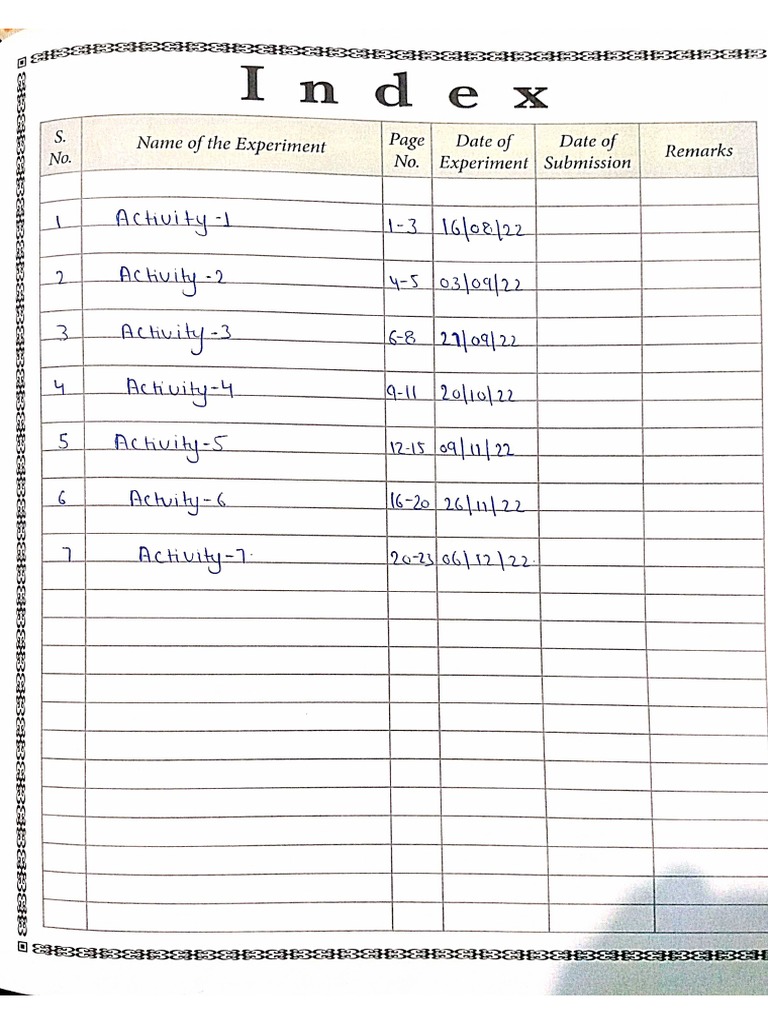 Index
S. No. Name of the Experiment Page No. Date of Experiment Date of Submission Remarks
1 Activity-1 1-3 16/08/22
2 Activity-2 4-5 03/09/22
3 Activity-3 6-8 27/09/22
4 Activity-4 9-11 20/10/22
5 Activity-5 12-15 09/11/22
6 Activity-6 16-20 26/11/22
7 Activity-7. 20-23 06/12/22.